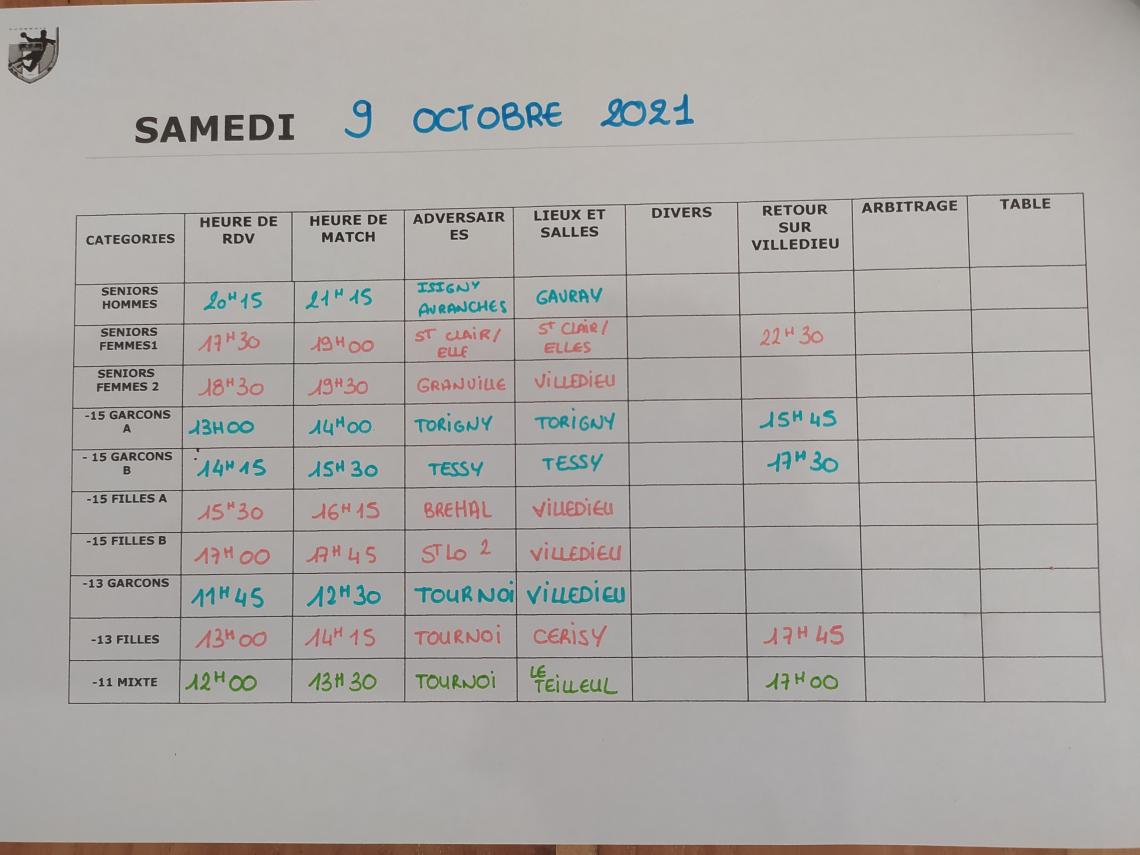 SAMEDI 9 OCTOBRE 2021
CATEGORIES HEURE DE RDV HEURE DE MATCH ADVERSAIRES LIEUX ET SALLES DIVERS RETOUR SUR VILLEDIEU ARBITRAGE TABLE
SENIORS HOMMES 20H15 21H15 ISIGNY AVRANCHES GAVRAY
SENIORS FEMMES1 17H30 19H00 ST CLAIR/ ELLE ST CLAIR/ ELLES 22H30
SENIORS FEMMES 2 18H30 19H30 GRANVILLE VILLEDIEU
-15 GARCONS A 13H00 14H00 TORIGNY TORIGNY 15H45
- 15 GARCONS B 14H15 15H30 TESSY TESSY 17H30
-15 FILLES A 15H30 16H15 BREHAL VILLEDIEU
-15 FILLES B 17H00 17H45 ST LO 2 VILLEDIEU
-13 GARCONS 11H45 12H30 TOURNOI VILLEDIEU
-13 FILLES 13H00 14H15 TOURNOI CERISY 17H45
-11 MIXTE 12H00 13H30 TOURNOI LE TEILLEUL 17H00